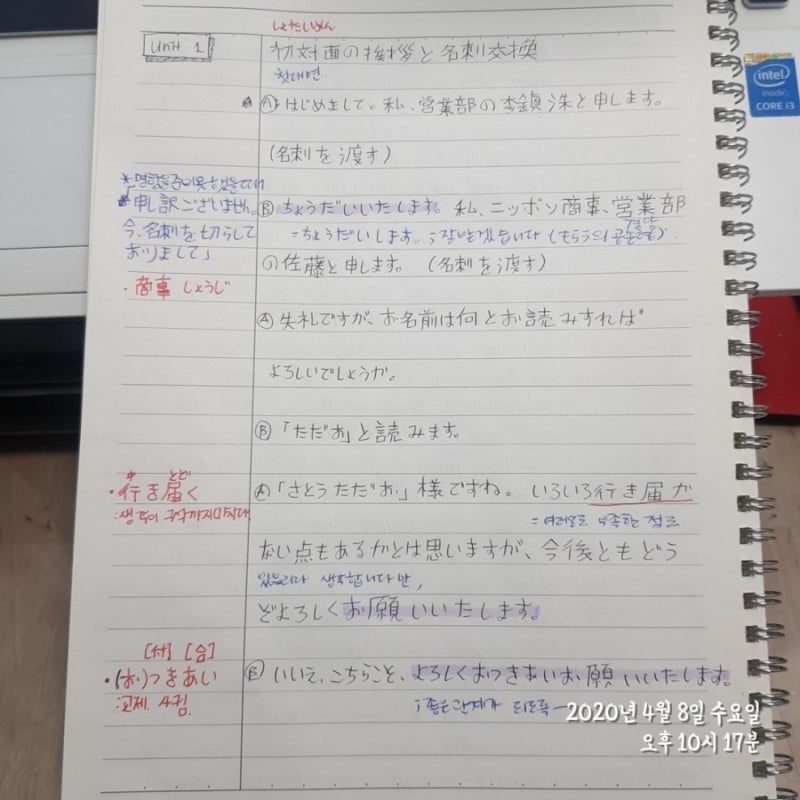 しょたいめん
Unit 1
初対面の挨拶と名刺交換
첫대면.
Ⓐ はじめまして。私、営業部の李鎮洙と申します。
(名刺を渡す)
「申し訳ございません。
今、名刺を切らして
おりまして」
Ⓑ ちょうだいいたします。私、ニッポン商事、営業部
=ちょうだいします。
の佐藤と申します。(名刺を渡す)
・商事 しょうじ
Ⓐ 失礼ですが、お名前は何とお読みすれば
よろしいでしょうか。
Ⓑ 「ただお」と読みます。
とど
・行き届く
Ⓐ 「さとうただお」様ですね。いろいろ行き届か
=여러모로 부족한 점도
ない点もあるかとは思いますが、今後ともどう
있으리라 생각합니다만,
ぞよろしくお願いいたします。
[付] [合]
・(お)つきあい
:교제. 사귐.
Ⓑ いいえ、こちらこそ、よろしくおつきあいお願いいたします。
좋은 관계가 되도록
2020년 4월 8일 수요일
오후 10시 17분
intel
inside
CORE i3